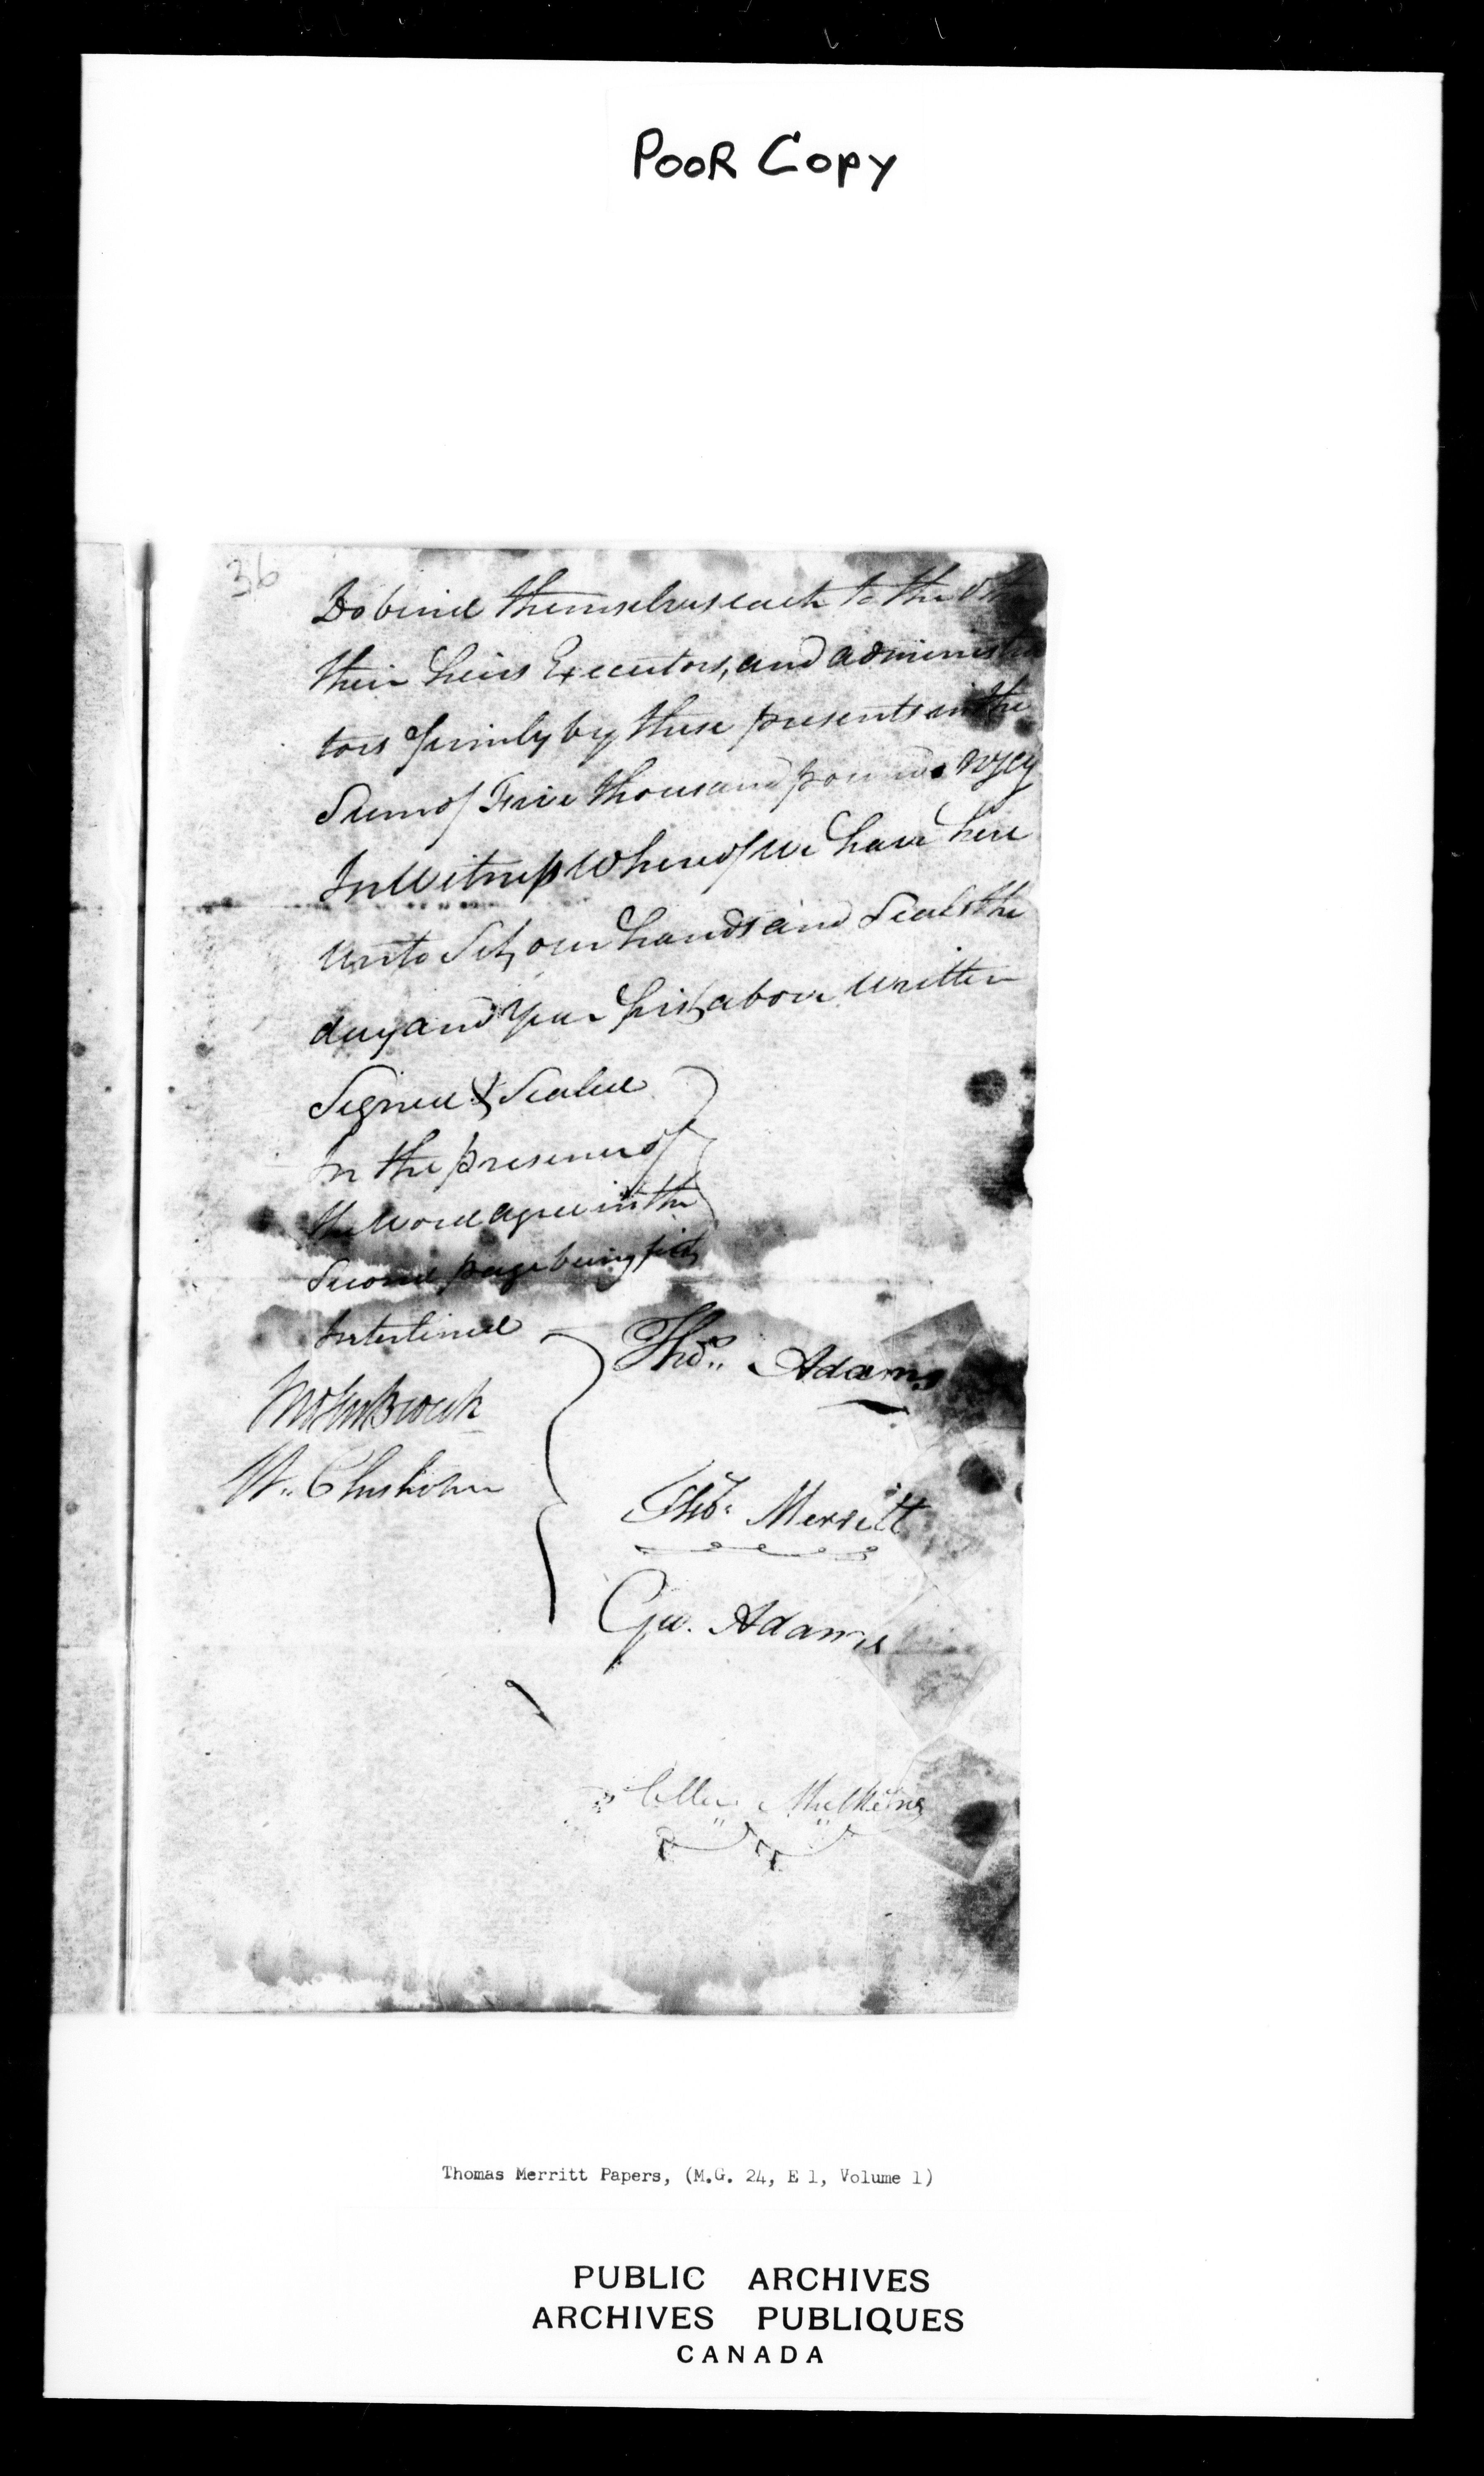 POOR COPY
36
Do bind themselves each to the oth
their heirs Executors, and administra
tors firmly by these presents in the
Sum of Five thousand pounds NYCy
In Witness Whereof we have here
unto Set our hands and Seals the
day and Year first above written
Signed & Sealed
In the presence of
the word agree in the
Second page being first
Interlined
Thos. Adams
W. Chisholm
Thos. Merritt
Geo. Adams
Thomas Merritt Papers, (M.G. 24, E 1, Volume 1)
PUBLIC ARCHIVES
ARCHIVES PUBLIQUES
CANADA